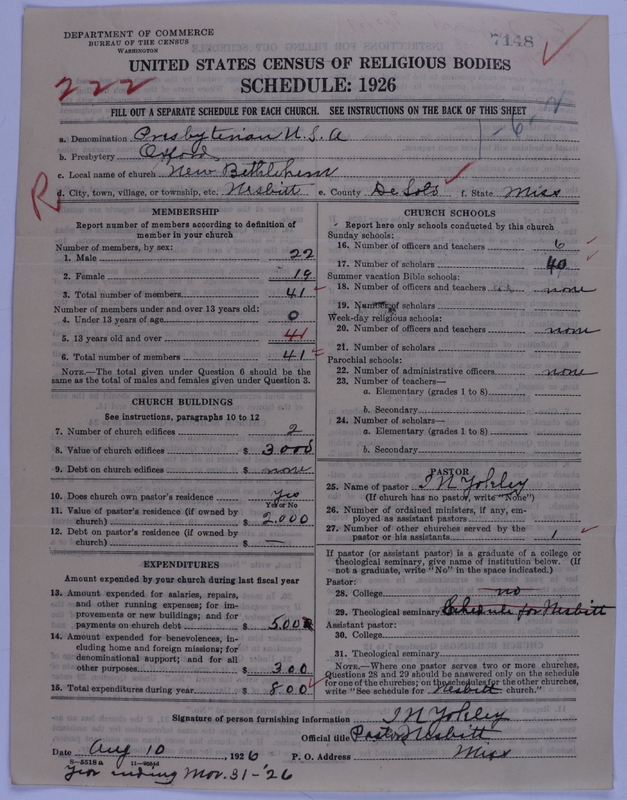 DEPARTMENT OF COMMERCE
BUREAU OF THE CENSUS
WASHINGTON
7148
UNITED STATES CENSUS OF RELIGIOUS BODIES
SCHEDULE: 1926
222
FILL OUT A SEPARATE SCHEDULE FOR EACH CHURCH. SEE INSTRUCTIONS ON THE BACK OF THIS SHEET
a. Denomination Presbyterian U.S.A
b. Presbytery Oxford
c. Local name of church New Bethlehem
R
d. City, town, village, or township, etc. Nesbitt e. County De Soto f. State Miss
MEMBERSHIP
Report number of members according to definition of
member in your church
Number of members, by sex:
1. Male 22
2. Female 19
3. Total number of members 41
Number of members under and over 13 years old:
4. Under 13 years of age 0
5. 13 years old and over 41
6. Total number of members 41
NOTE.—The total given under Question 6 should be
the same as the total of males and females given under Question 3.
CHURCH BUILDINGS
See instructions, paragraphs 10 to 12
7. Number of church edifices 2
8. Value of church edifices $ 3000
9. Debt on church edifices $ none
10. Does church own pastor's residence yes
Yes or No
11. Value of pastor's residence (if owned by
church) $ 2.000
12. Debt on pastor's residence (if owned by
church) $ —
EXPENDITURES
Amount expended by your church during last fiscal year
13. Amount expended for salaries, repairs,
and other running expenses; for im-
provements or new buildings; and for
payments on church debt $ 500
14. Amount expended for benevolences, in-
cluding home and foreign missions; for
denominational support; and for all
other purposes $ 300
15. Total expenditures during year $ 800
CHURCH SCHOOLS
Report here only schools conducted by this church
Sunday schools:
16. Number of officers and teachers 6
17. Number of scholars 40
Summer vacation Bible schools:
18. Number of officers and teachers none
19. Number of scholars
Week-day religious schools:
20. Number of officers and teachers none
21. Number of scholars
Parochial schools:
22. Number of administrative officers none
23. Number of teachers—
a. Elementary (grades 1 to 8)
b. Secondary
24. Number of scholars—
a. Elementary (grades 1 to 8)
b. Secondary
PASTOR
25. Name of pastor
(If church has no pastor, write "None")
26. Number of ordained ministers, if any, em-
ployed as assistant pastors
27. Number of other churches served by the
pastor or his assistants 1
If pastor (or assistant pastor) is a graduate of a college or
theological seminary, give name of institution below. (If
not a graduate, write "No" in the space indicated.)
Pastor:
28. College no
29. Theological seminary Schedule for Nesbitt
Assistant pastor:
30. College
31. Theological seminary
NOTE.—Where one pastor serves two or more churches,
Questions 28 and 29 should be answered only on the schedule
for one of the churches; on the schedules for the other churches,
write "See schedule for Nesbitt church."
Signature of person furnishing information
Official title Pastor Nesbitt
Date Aug 10, 1926 P. O. Address Miss
8—5518a
Year ending Mar. 31-'26